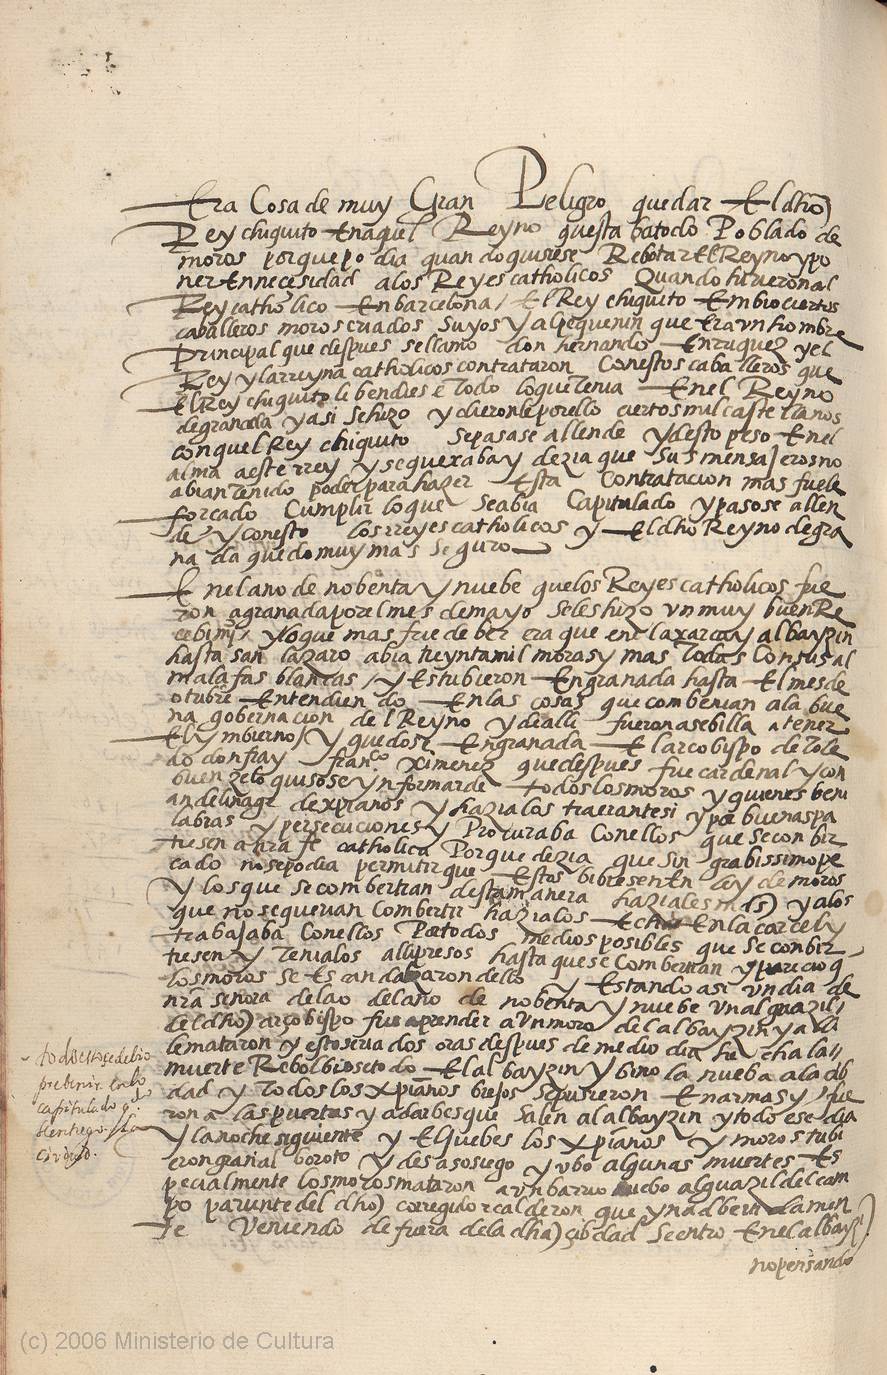 Era Cosa de muy Gran Peligro quedar El dho)
Rey chiquito Enaquel Reyno questa batodo Poblado de
moros porque po dia quan do quisiese Rebotar El Reyno y po
ner En necesidad alos Reyes catholicos Quando hirieron al
Rey catholico En barcelona / El Rey chiquito Embio ciertos
caballeros moros criados suyos y alpequenin que Era vn hombre
Principal que despues se llamo don hernando Enrriquez y el
Rey y larreyna catholicos contrataron Conestos caballeros que
El Rey chiquito le bendiese Todo loque Tenia En el Reyno
de granada y asi se hizo y dieronle por ello ciertos mil castellanos
con quel Rey chiquito se pasase allende y desto peso En el
alma aeste rrey y se quexaba y dezia que sus mensajeros no
abian tenido poder para hazer Esta Contratacion mas fuele
forcado Cumplir lo que se abia Capitulado y pasose allen
de y conesto los rreyes catholicos y El dho Reyno de gra
na da quedo muy mas seguro
En el ano de nobenta y nuebe que los Reyes catholicos fue
ron a granada por el mes de mayo se les hizo vn muy buen Re
cebimjº / y lo que mas fue de ber era que en el axarcay albayzin
hasta san lazaro abia treynta mil moras y mas Todas Con sus al
malafas blancas / y Estubieron En granada hasta El mes de
otubre Entendien do En las cosas que combenian ala bue
na gobernacion del Reyno y dealli fueron a sebilla a tener
El ymbierno / y quedose En granada El arcobispo de Tole
do don fray franco ximenez que despues fue cardenal y con
buen zelo quisose ynformar de todos los moros y quienes beni
an de linage de xpianos y hazialos traer antesi y por buenas pa
labras y persecuciones y Procuraba Conellos que se conbir
tiesen a nra fe catholica Porque dezia que sin grabissimo pe
cado no se podia permitir que Estos bibiesen En ley de moros
y los que se combertian desta manera haziales mrs) y alos
que no se querian Combertir hazialos Echar En la carcel y
trabajaba Conellos Por todos medios posibles que se conbir
tiesen y Tenialos alli presos hasta que se Combertian y parecio q
los moros se Escandalizaron dello y Estando asi vn dia de
nra señora de la o del año de nobenta y nuebe vn alguazil
del dho) arçobispo fue a prender a vn moro del albayzin y alli
le mataron y esto seria dos oras despues de medio dia fecha la
muerte Rebolbiose todo El albayzin y bino la nueba a la cib
dad y Todos los xpianos biejos se pusieron En armas y fue
ron a las puertas y adarbes que salen al albayzin y todo ese dia
y la noche siguiente y El juebes los xpianos y moros tubi
eron gran al boroto y desasosiego y vbo algunas muertes Es
pecialmente los moros mataron a vn barrionuebo alguazil del cam
po pariente del dho) corregidor calderon que ynadbertidamen
te Veniendo de fuera de la dha) cibdad se entro En el albayzi)
no pensando
todo esto se debio
prebenir en lo
capitulado q